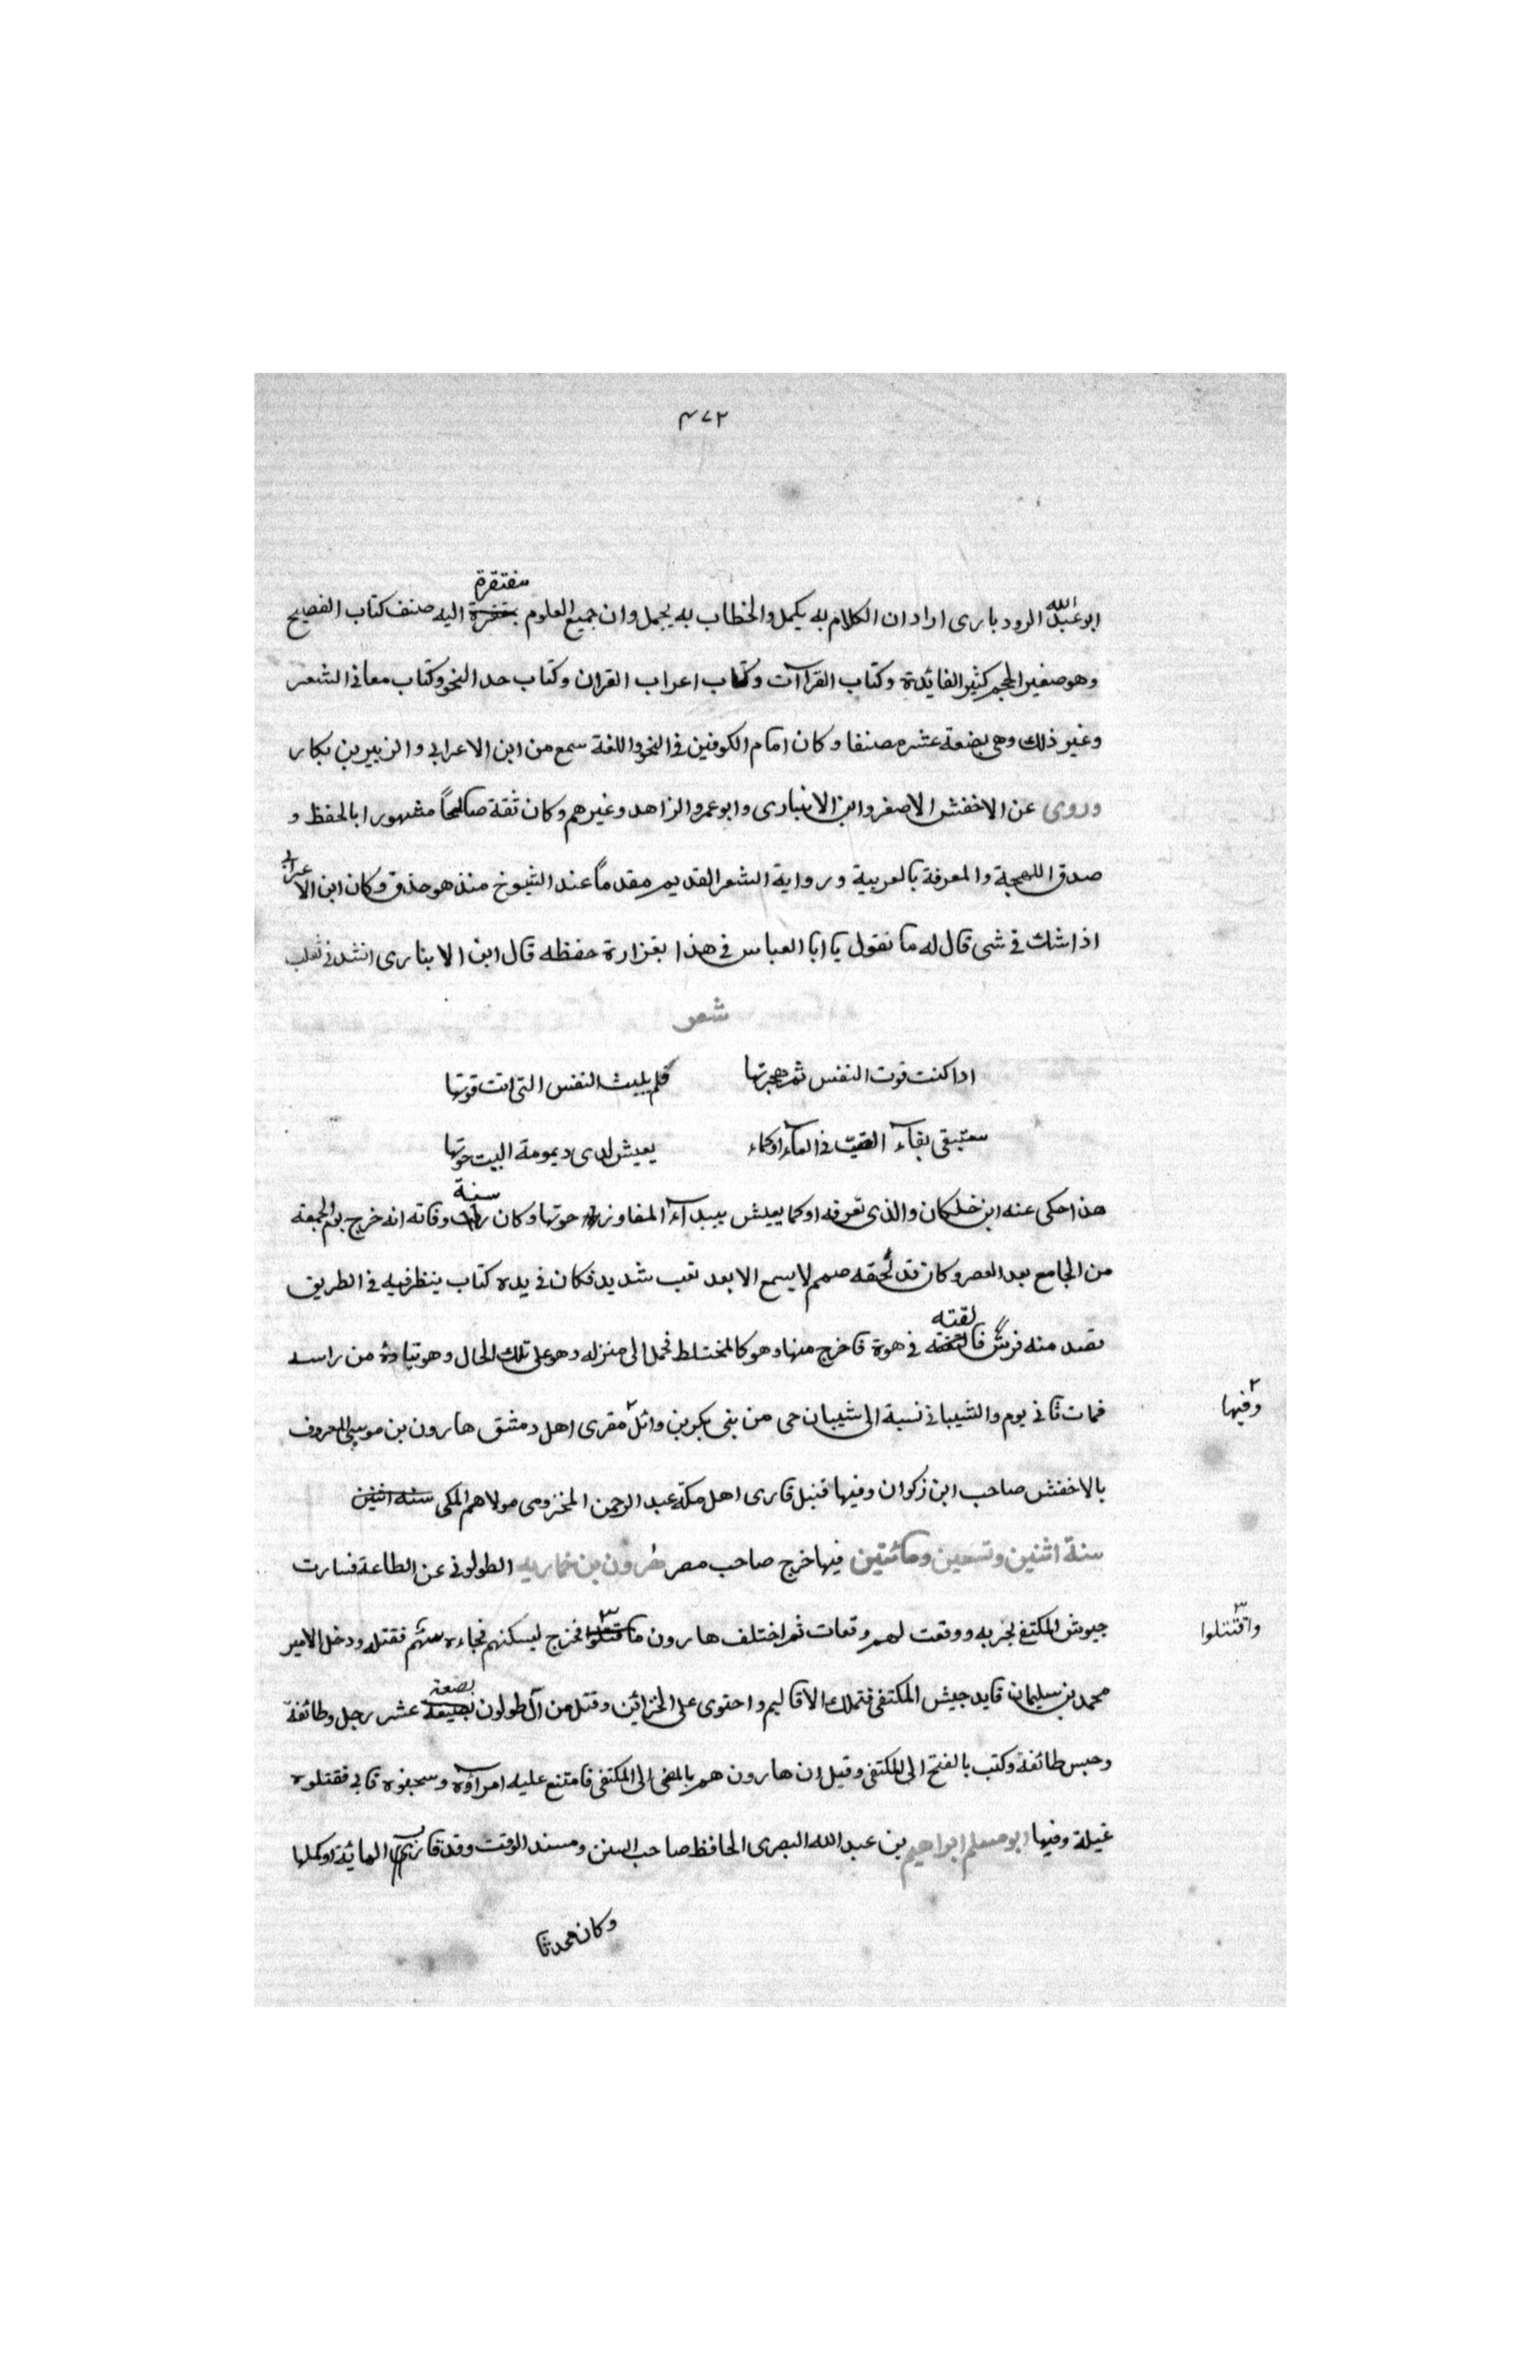 ٤٧٢
مفتقرة
ابو عبد الله الرودبارى اراد ان الكلام به يكمل والخطاب به يجمل وان جميع العلوم اليه صنف كتاب الفصيح
وهو صغير الحجم كثير الفائدة وكتاب القراآت وكتاب اعراب القران وكتاب حد النحو وكتاب معانى الشعر
وغير ذلك وهى بضعة عشر مصنفا وكان امام الكوفين فى النحو واللغة سمع من ابن الاعرابى والزبير بن بكار
وروى عن الاخفش الاصغر وابن الانبارى وابو عمرو الزاهد وغيرهم وكان ثقة صالحاً مشهورا بالحفظ و
صدق اللهجة والمعرفة بالعربية ورواية الشعر القديم مقدماً عند الشيوخ منذ هو حذق وكان ابن الاعرابى
اذا شك فى شى قال له ما تقول يا ابا العباس فى هذا بغزارة حفظه قال ابن الابنارى انشدنى ثعلب
شعر
اذا كنت قوت النفس ثم هجرتها فلم يلبث النفس التى انت قوتها
ستبقى بقاء فى الماء او كماء يعيش لدى ديمومة البيت حوتها
سنة
هذا حكى عنه ابن خلكان والذى تعرفه او كما يعيش ببيداء المفاوز حوتها وكان وفاته انه خرج يوم الجمعة
من الجامع بعد العصر وكان قد لحقه صمم لا يسمع الا بعد تعب شديد فكان فى يده كتاب ينظر فيه فى الطريق
لقته
فصد منه فرس فا فى هوة فاخرج منها وهو كالمختلط فحمل الى منزله وهو على تلك الحال وهو يتاوه من راسه
فمات ثانى يوم والشيبانى نسبة الى شيبان حى من بنى بكر بن وائل ٢ مقرى اهل دمشق هارون بن موسى المعروف
٢ وفيها
بالاخفش صاحب ابن ذكوان وفيها قنبل قارى اهل مكة عبد الرحمن المخزومى مولاهم المكى سنه اثنين
سنة اثنين وتسعين ومائتين فيها خرج صاحب مصر هرون بن خمارويه الطولونى عن الطاعة فسارت
جيوش المكتفى لحربه ووقعت لهم وقعات ثم اختلف هارون ٣ فخرج ليسكنهم فجاءه سهم فقتله ودخل الامير
٣ واقتتلوا
بضعة
محمد بن سليمان قايد جيش المكتفى فتملك الاقاليم واحتوى على الخزائن وقتل من آل طولون عشر رجل وطائفة
وحبس طائفة وكتب بالفتح الى المكتفى وقيل ان هارون هم بالمضى الى المكتفى فامتنع عليه امرآؤه وسجفوه فابى فقتلوه
غيلة وفيها ابو مسلم ابراهيم بن عبد الله البصرى الحافظ صاحب السنن ومسند الوقت وقد قارب المائة او كملها
وكان محدثا